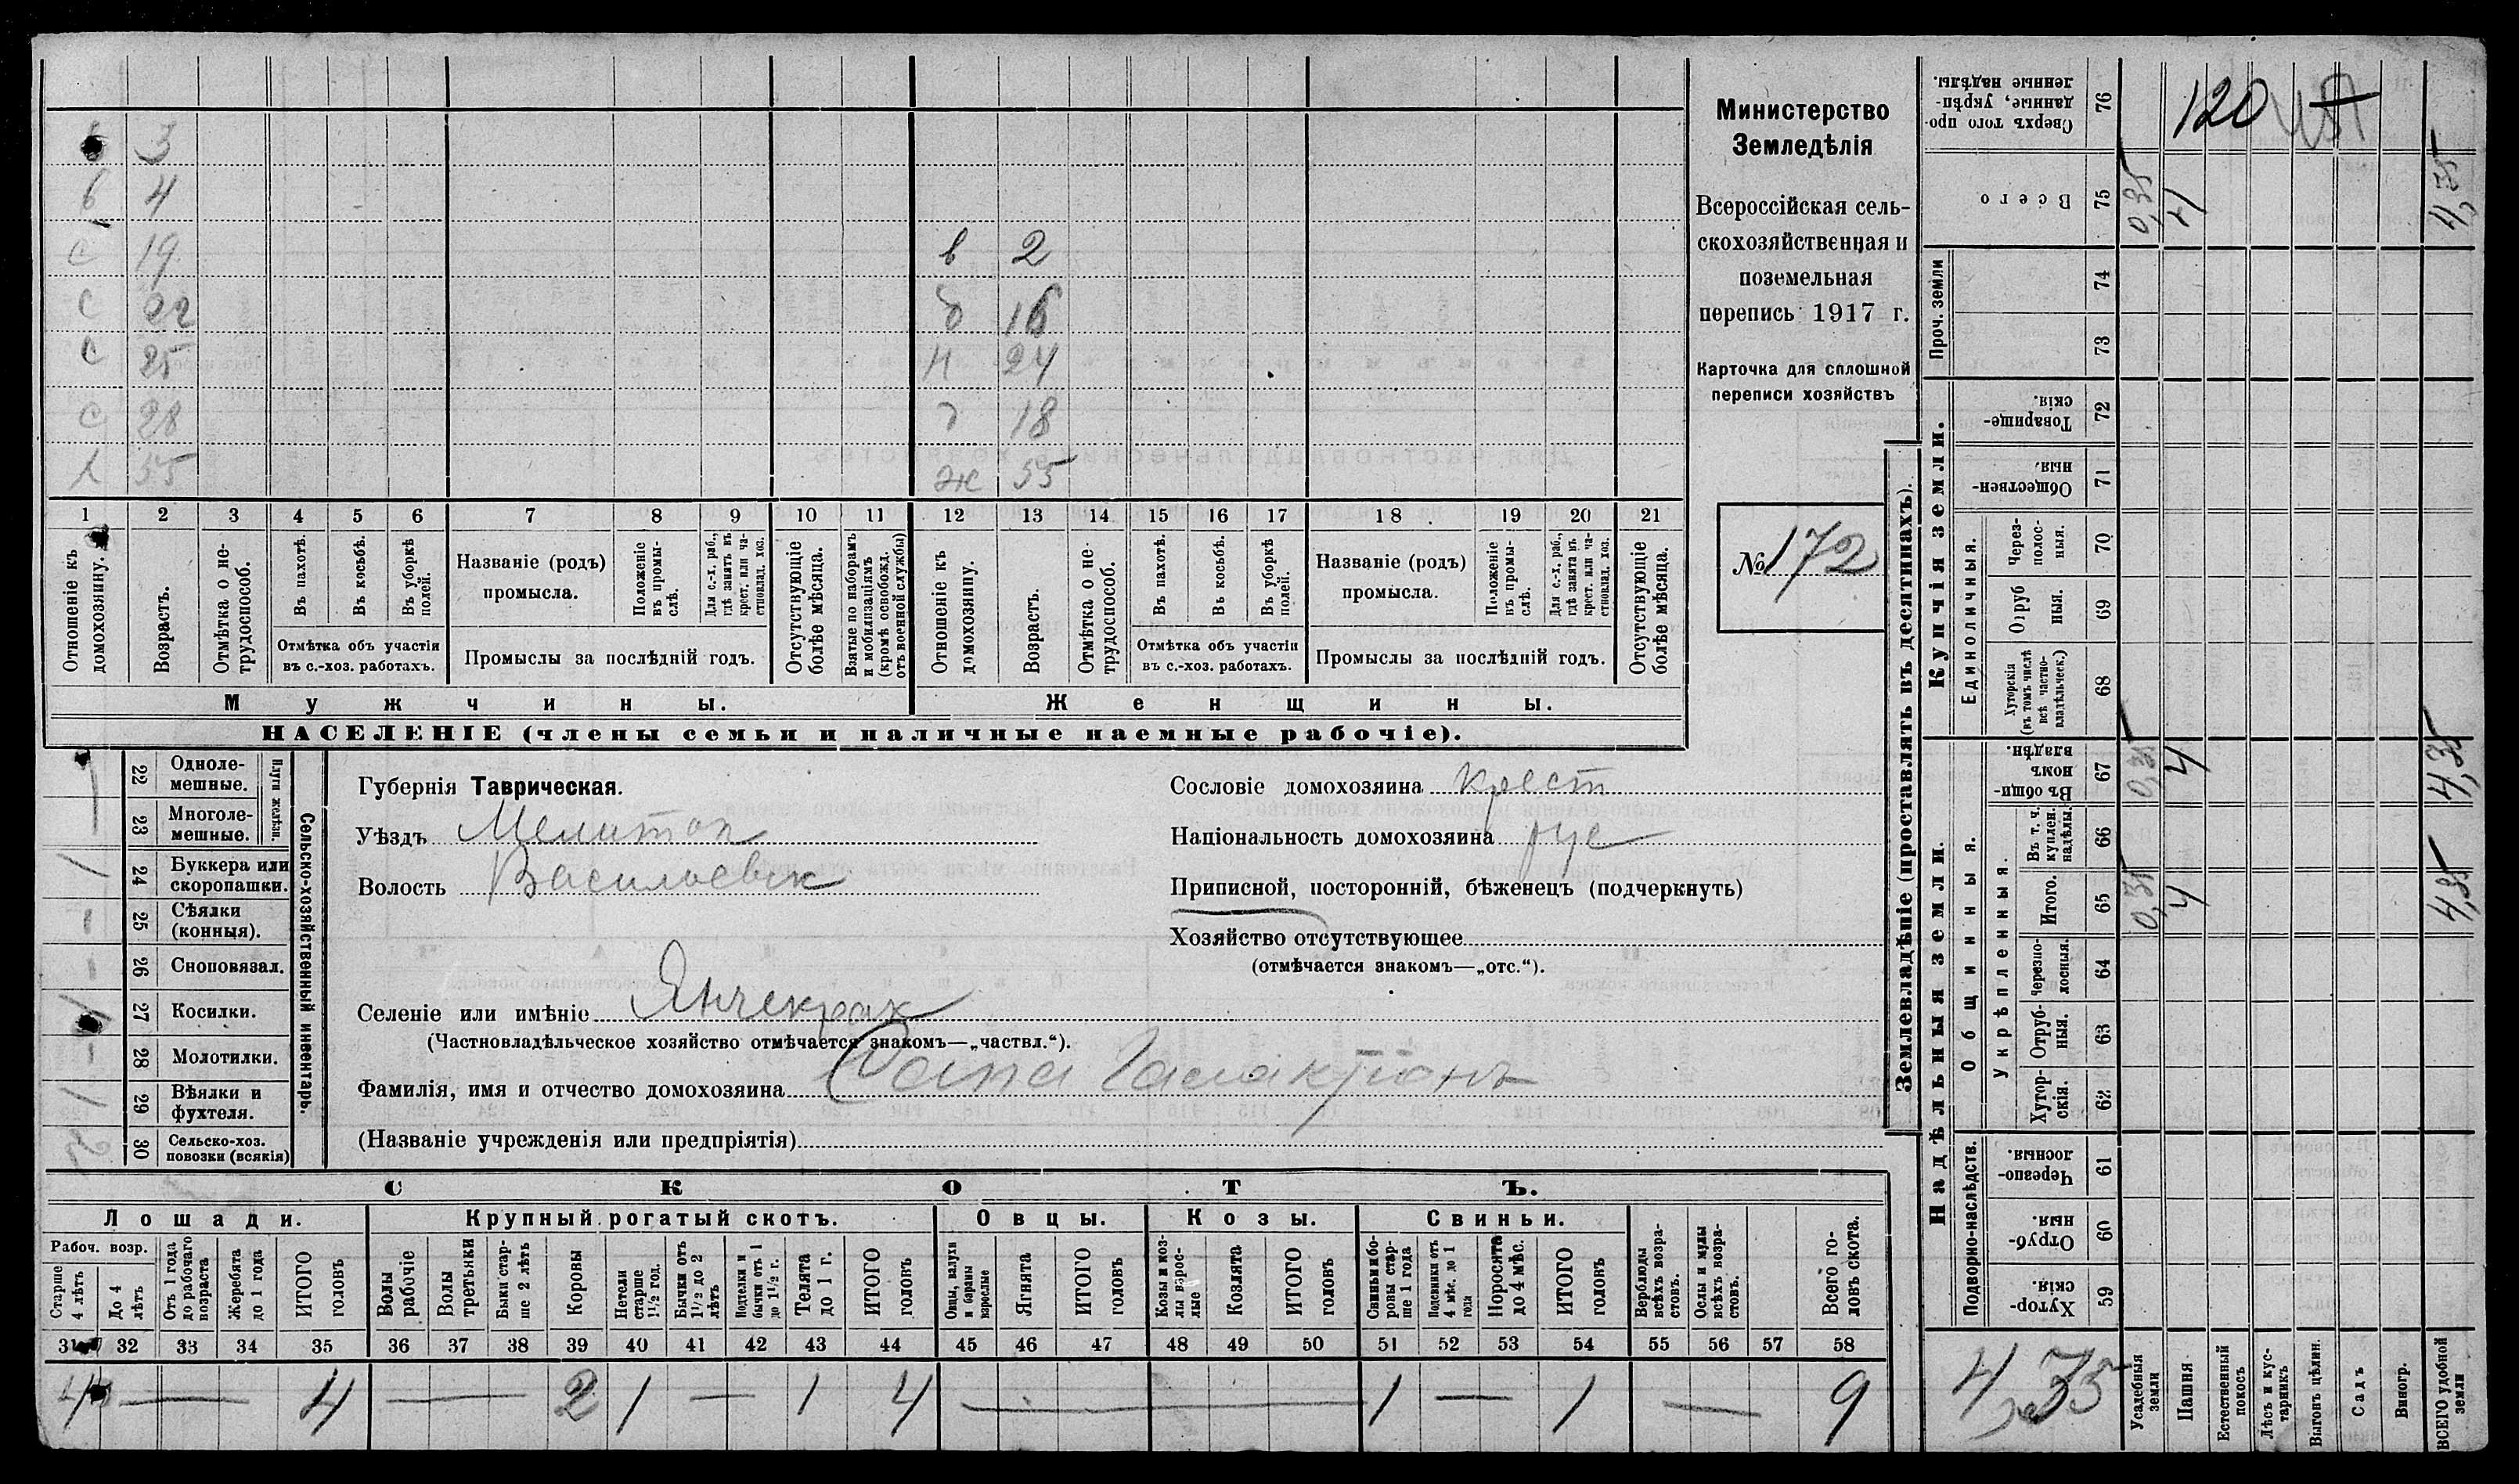 б 3
б 4
с 19
с 22
с 25
с 28
55
в 2
16
24
18
ж 55
1 2 3 4 5 6 7 8 9 10 11 12 13 14 15 16 17 18 19 20 21
Отношеніе къ домохозяину.
Возрастъ.
Отмѣтка о не-трудоспособ.
Въ пахотѣ.
Въ косьбѣ.
Въ уборкѣ полей.
Отмѣтка объ участіи
въ с.-хоз. работахъ.
Названіе (родъ)
промысла.
Положеніе въ промы-слѣ.
Для с.-х. раб., гдѣ занятъ въ крест. или ча-стновлад. хоз.
Промыслы за послѣдній годъ.
Отсутствующіе болѣе мѣсяца.
Взятые по наборамъ и мобилизаціямъ (кромѣ освобожд. отъ военной службы)
Отношеніе къ домохозяину.
Возрастъ.
Отмѣтка о не-трудоспособ.
Въ пахотѣ.
Въ косьбѣ.
Въ уборкѣ полей.
Отмѣтка объ участіи
въ с.-хоз. работахъ.
Названіе (родъ)
промысла.
Положеніе въ промы-слѣ.
Для с.-х. раб., гдѣ занята въ крест. или ча-стновлад. хоз.
Промыслы за послѣдній годъ.
Отсутствующіе болѣе мѣсяца.
Мужчины.
Женщины.
НАСЕЛЕНІЕ (члены семьи и наличные наемные рабочіе).
Министерство
Земледѣлія
Всероссійская сель-
скохозяйственная и
поземельная
перепись 1917 г.
Карточка для сплошной
переписи хозяйствъ
№ 172
22 Одноле-мешные.
23 Многоле-мешные.
Плуги желѣзн.
24 Буккера или скоропашки. 1
25 Сѣялки (конныя). –
26 Сноповязал. –
27 Косилки. 1
28 Молотилки. –
29 Вѣялки и фухтеля. 1
30 Сельско-хоз. повозки (всякія) 2
Сельско-хозяйственный инвентарь.
Губернія Таврическая.
Уѣздъ Мелитоп
Волость Васильевск
Селеніе или имѣніе Янчекрак
(Частновладѣльческое хозяйство отмѣчается знакомъ—„частвл.“).
Фамилія, имя и отчество домохозяина Галактіонъ
(Названіе учрежденія или предпріятія)
Сословіе домохозяина крест
Національность домохозяина рус
Приписной, посторонній, бѣженецъ (подчеркнуть)
Хозяйство отсутствующее
(отмѣчается знакомъ—„отс.“).
СКОТЪ.
Лошади.
Крупный рогатый скотъ.
Овцы.
Козы.
Свиньи.
Рабоч. возр.
Старше 4 лѣтъ
До 4 лѣтъ
Отъ 1 года до рабочаго возраста
Жеребята до 1 года
ИТОГО головъ
Волы рабочіе
Волы третьяки
Быки стар-ше 2 лѣтъ
Коровы
Нетели старше 1½ год.
Бычки отъ 1½ до 2 лѣтъ
Подтелки и бычки отъ 1 до 1½ г.
Телята до 1 г.
ИТОГО головъ
Овцы, валухи и бараны взрослые
Ягнята
ИТОГО головъ
Козы и коз-лы взрос-лые
Козлята
ИТОГО головъ
Свиньи и бо-ровы стар-ше 1 года
Подсвинки отъ 4 мѣс. до 1 года
Поросята до 4 мѣс.
ИТОГО головъ
Верблюды всѣхъ возра-стовъ.
Ослы и мулы всѣхъ возра-стовъ.
Всего го-ловъ скота.
31 32 33 34 35 36 37 38 39 40 41 42 43 44 45 46 47 48 49 50 51 52 53 54 55 56 57 58
4 — 4 — 2 1 — 1 4 — 1 — 1 — 9
Землевладѣніе (проставлять въ десятинахъ).
Надѣльныя земли.
Купчія земли.
Проч. земли
Подворно-наслѣдств.
Общинныя.
Укрѣпленныя.
Единоличныя.
Сверхъ того про-данные, укрѣп-ленные надѣлы. 76 120
Всего 75 0,35 4 4,35
74
73
Товарище-скія. 72
Обществен-ныя. 71
Через-полос-ныя. 70
Отруб ныя. 69
Хуторскія (въ томъ числѣ всѣ частно-владѣльческ.) 68
Въ общи-номъ владѣн. 67 0,35 4 4,35
Въ т. ч. куплен. надѣлы 66
Итого. 65 0,35 4 4,35
Черезпо-лосныя. 64
Отруб-ныя. 63
Хутор-скія. 62
Черезпо-лосныя. 61
Отруб-ныя. 60
Хутор-скія. 59
4,35
Усадебныя земли
Пашня
Естественный покосъ
Лѣсъ и кус-тарникъ
Выгонъ цѣлин.
Садъ
Виногр.
ВСЕГО удобной земли